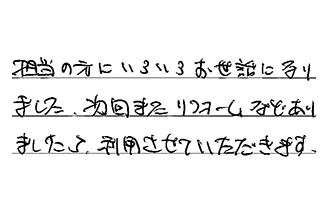 担当の方にいろいろお世話になり
ました、次回またリフォームなどあり
ましたら、利用させていただきます、